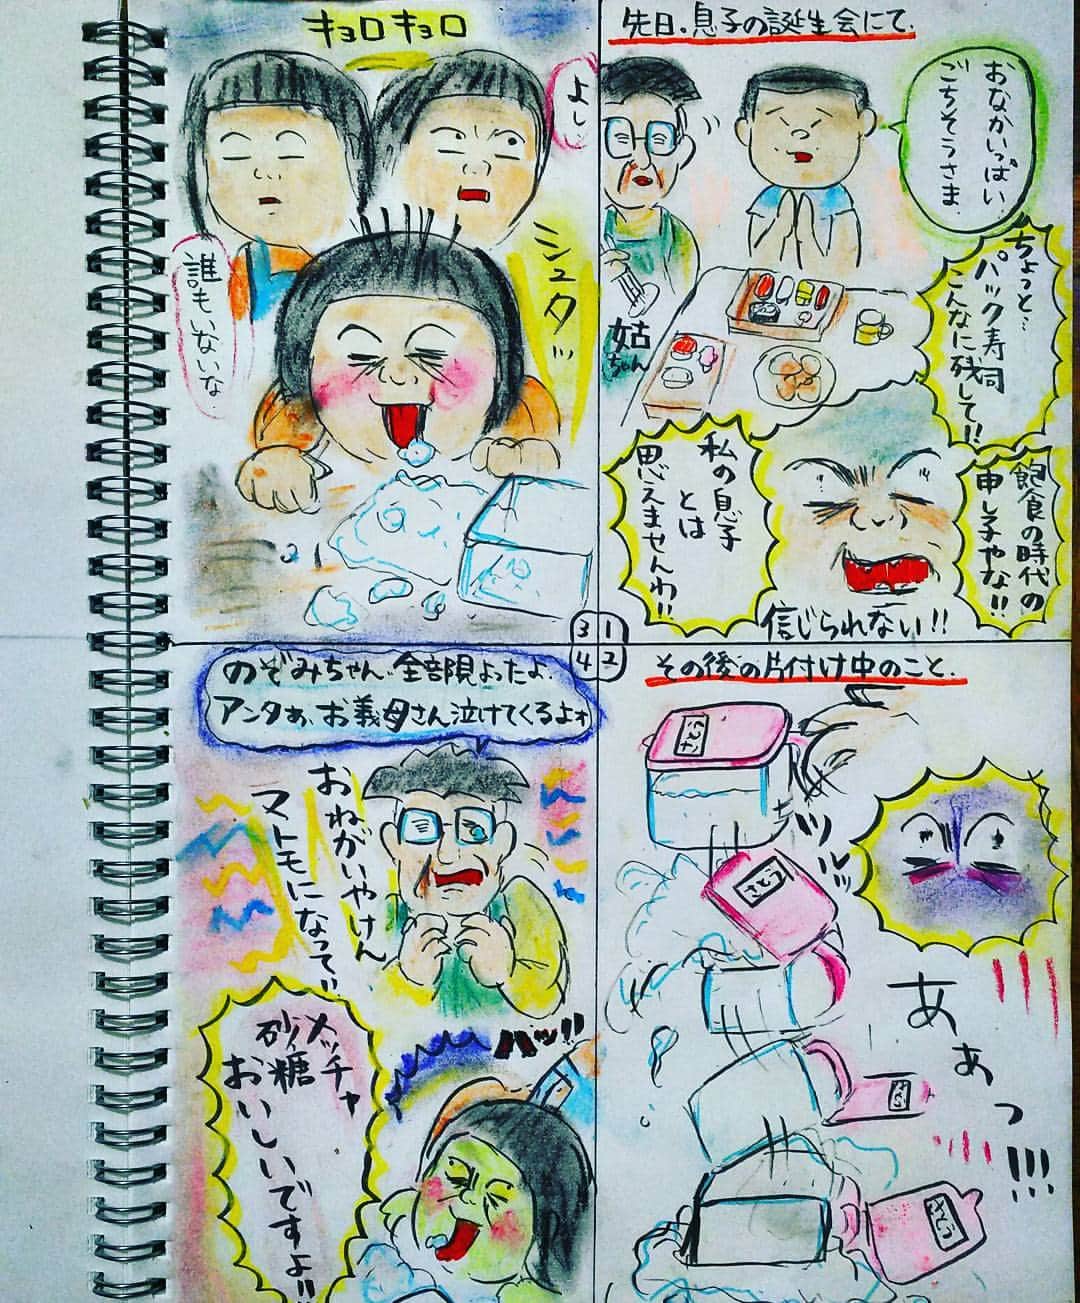 先日、息子の誕生会にて、
おなかいっぱい
ごちそうさま
姑
ちゃん
ちょっと…
パック寿司
こんなに残して!!
飽食の時代の
申し子やな!!
私の息子
とは
思えませんわ!!
信じられない!!
1
2
3
4
その後の片付け中のこと、
さとう
ツルッ
さとう
あぁっ!!!
さとう
さとう
キョロキョロ
よし
誰もいないな
シュタッ
のぞみちゃん、全部見よったよ、
アンタぁ、お義母さん泣けてくるよォ
おねがいやけん
マトモになって!!
ハッ!!
メッチャ
砂糖
おいしいですよ!!